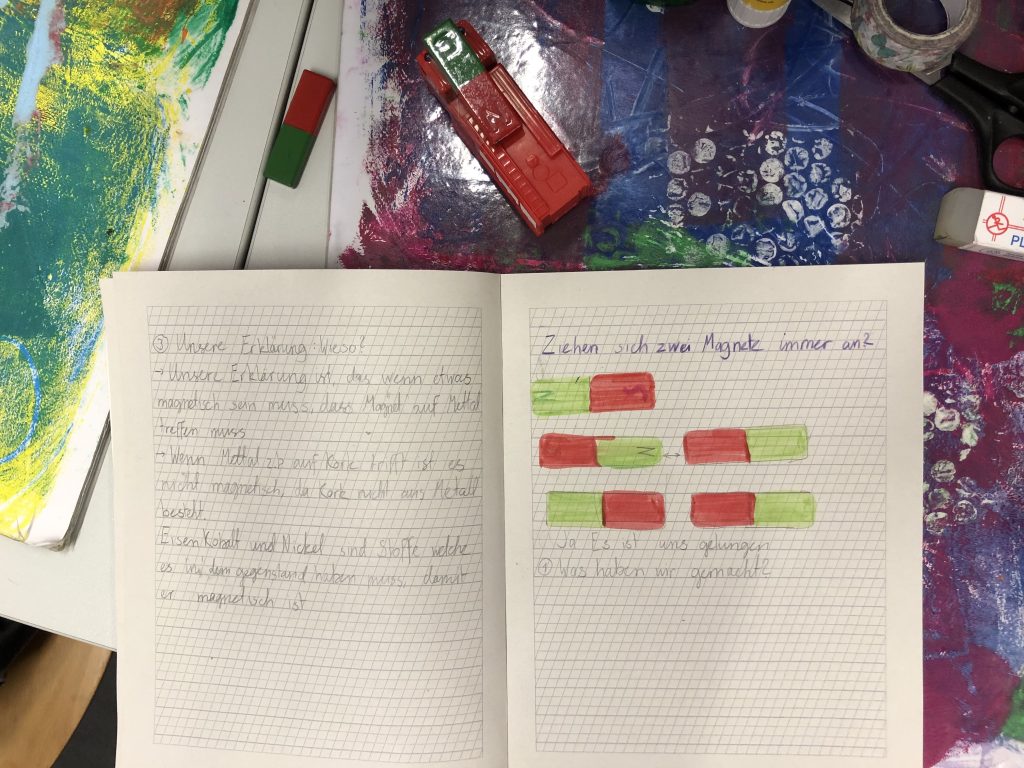 ③ Unsere Erklärung: Wieso?
→ Unsere Erklärung ist, das wenn etwas
magnetisch sein muss, dass Magnet auf Mettal
treffen muss
→ Wenn Mettal z.p auf Kork trifft ist es
nicht magnetisch, da Kork nicht aus Metall
besteht.
Eisen Kobalt und Nickel sind Stoffe welche
es in dem gegenstand haben muss, damit
er magnetisch ist
Ziehen sich zwei Magnete immer an?
N S
N
Ja Es ist uns gelungen
① Was haben wir gemacht?